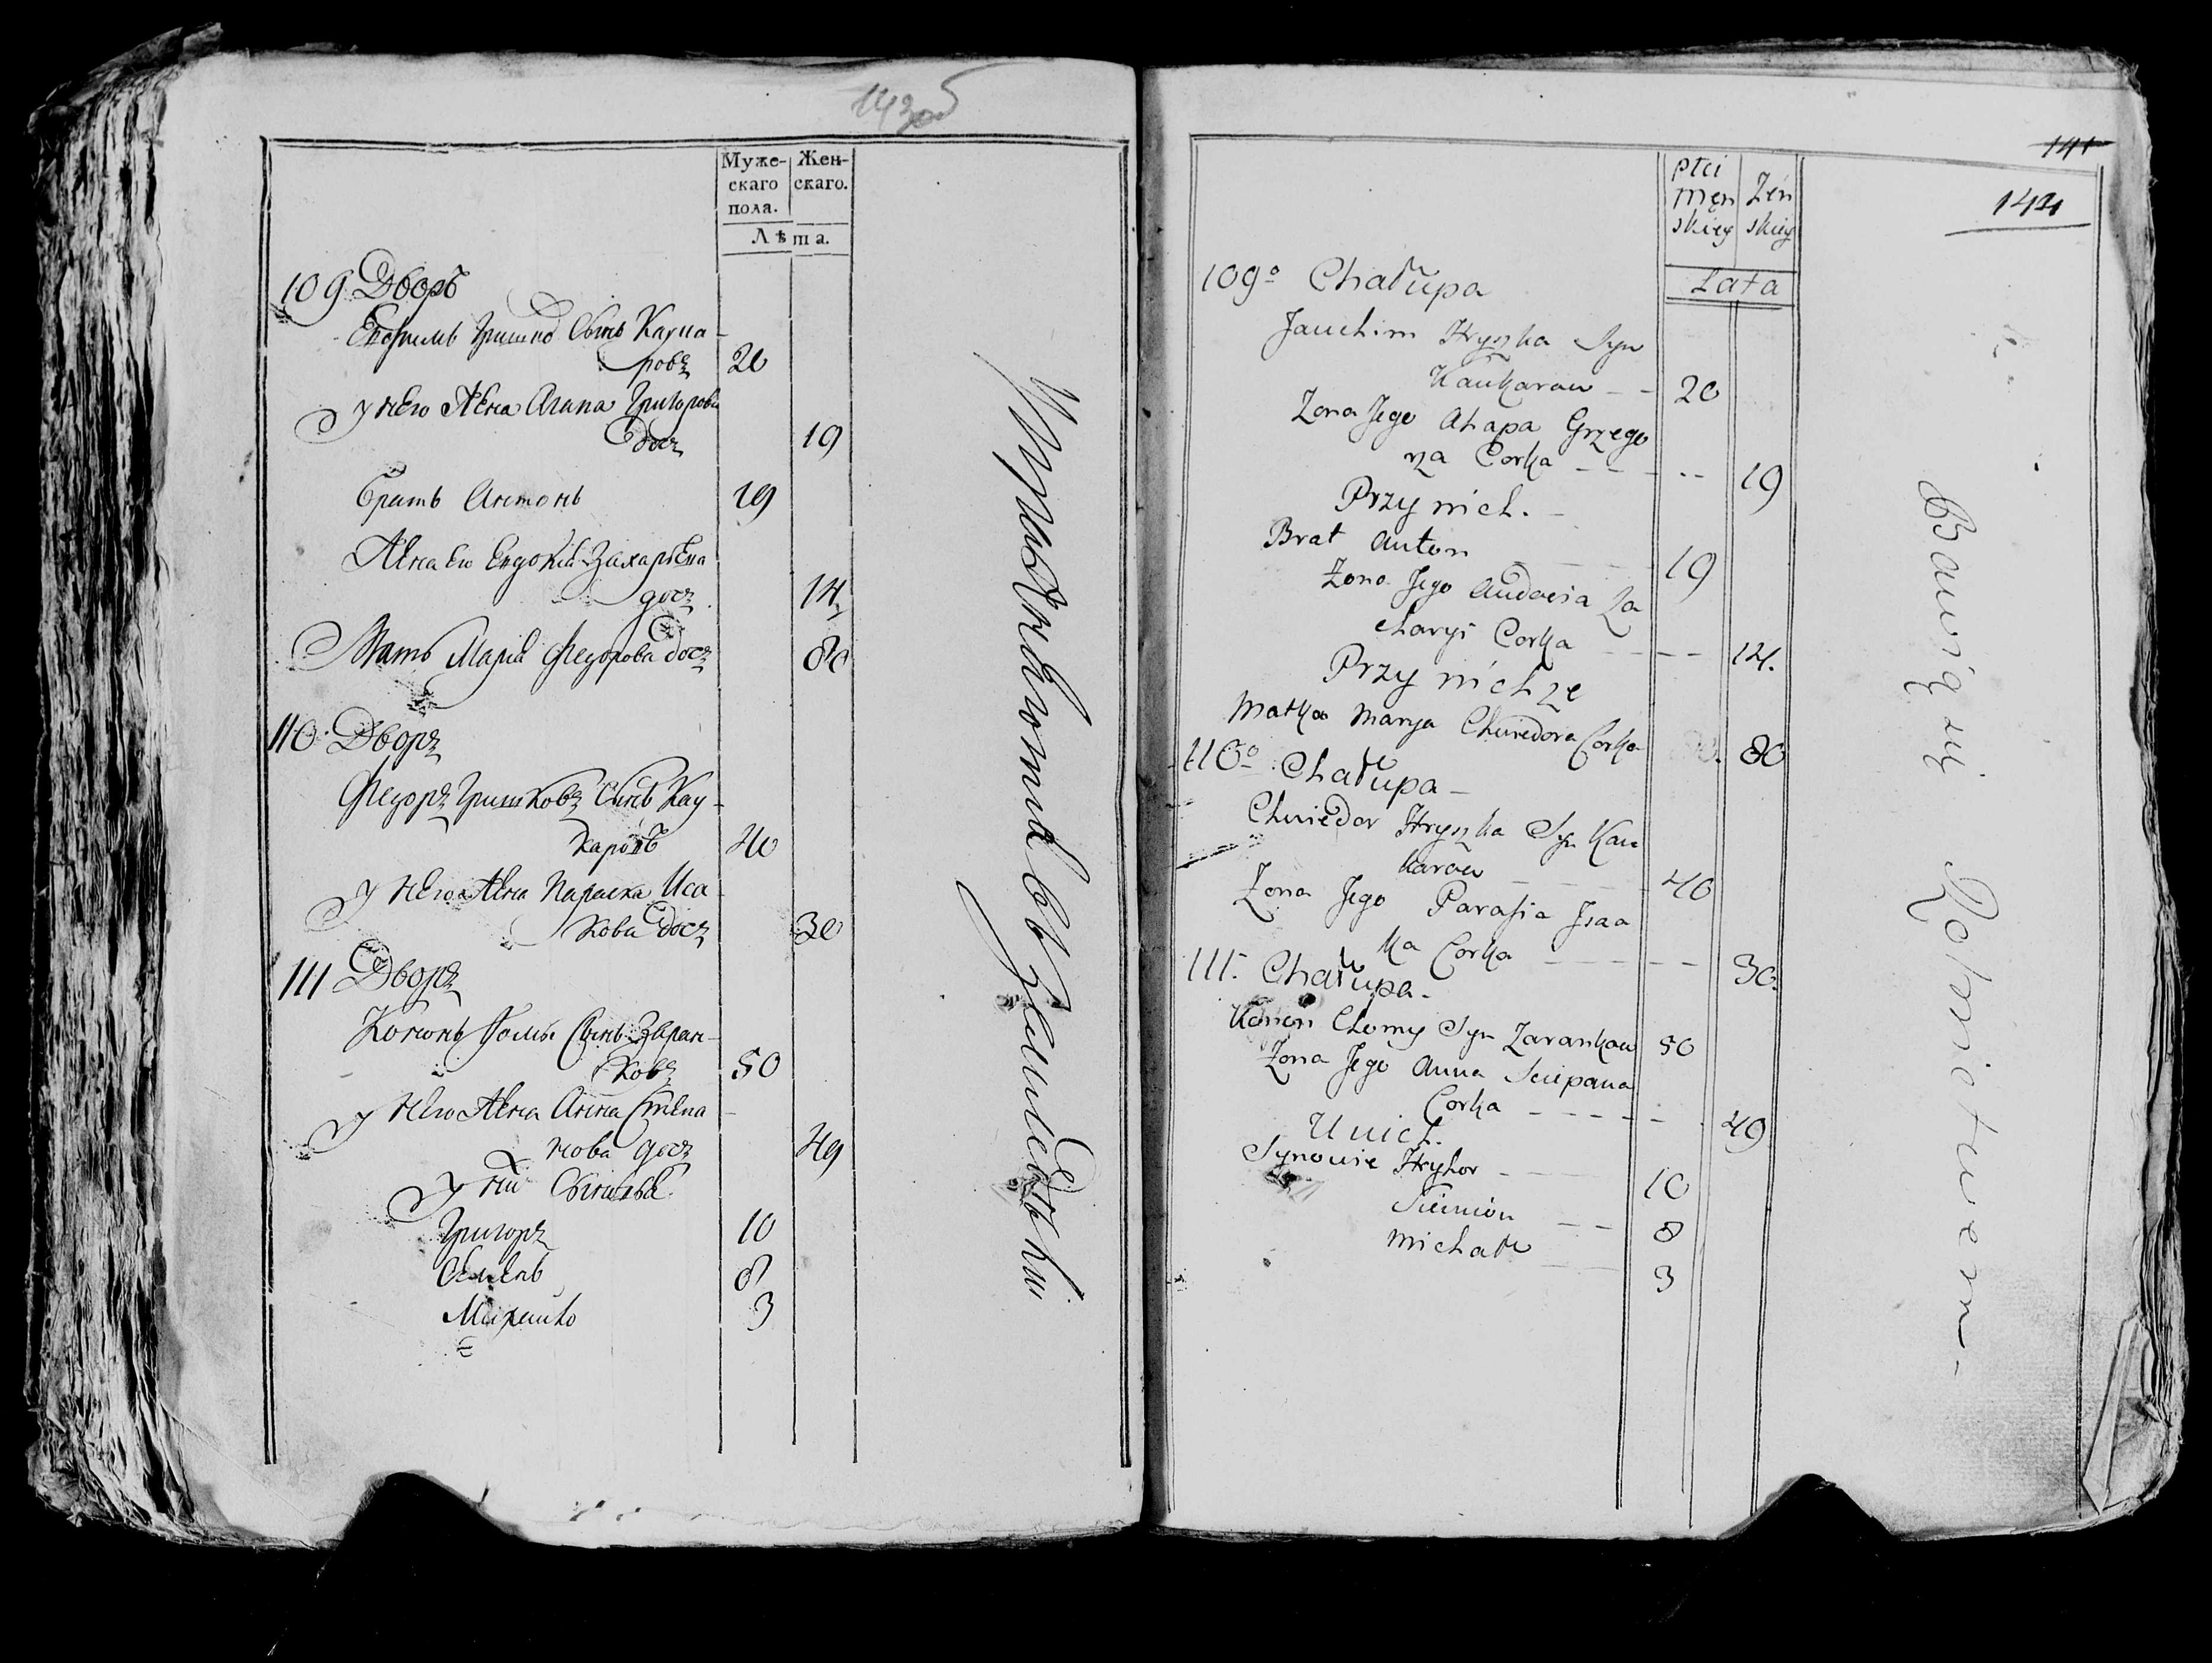 143об
Муже-
скаго
пола.
Жен-
скаго.
Лѣта.
109 Дворъ
Евфимъ Гришко Сынъ Кауца-
ровъ 20
У него Жена Агапа Григорова
дочъ 19
Братъ Антонъ 19
Жена Ево Евдокія Захарьева
дочъ 14
Мать Марія Федорова дочъ 80
110 Дворъ
Федоръ Гришковъ Сынъ Кау-
каровъ 40
У него Жена Параска Иса-
кова дочъ 30
111 Дворъ
Кононъ Фомы Сынъ Заран-
ковъ 50
У него Жена Анна Степа-
нова дочъ 49
У них Сыновья
Григоръ 10
Семенъ 8
Михайло 3
141
144
płci
męn
skiey
Żeń
skiey
Lata
109º Chałupa
Jauchim Hryszka Syn
Kaukarau -- 20
Zona Jego Ahapa Grzego
rza Corka ----- 19
Przy nich. -
Brat Anton 19
Zona Jego Audocia Za
charyi Corka ---- 14.
Przy nichże
Matka Marya Chwiedora Corka 80
110º Chałupa -
Chwiedor Hryszka Syn Kau
karau 40
Zona Jego Parasia Isaa
ka Corka ----- 30.
111. Chałupa -
Konon Chomy Syn Zarankau 50
Zona Jego Anna Sciepana
Corka ------ 49
U nich.
Synowie Hryhor - 10
Siemion -- 8
Michał 3